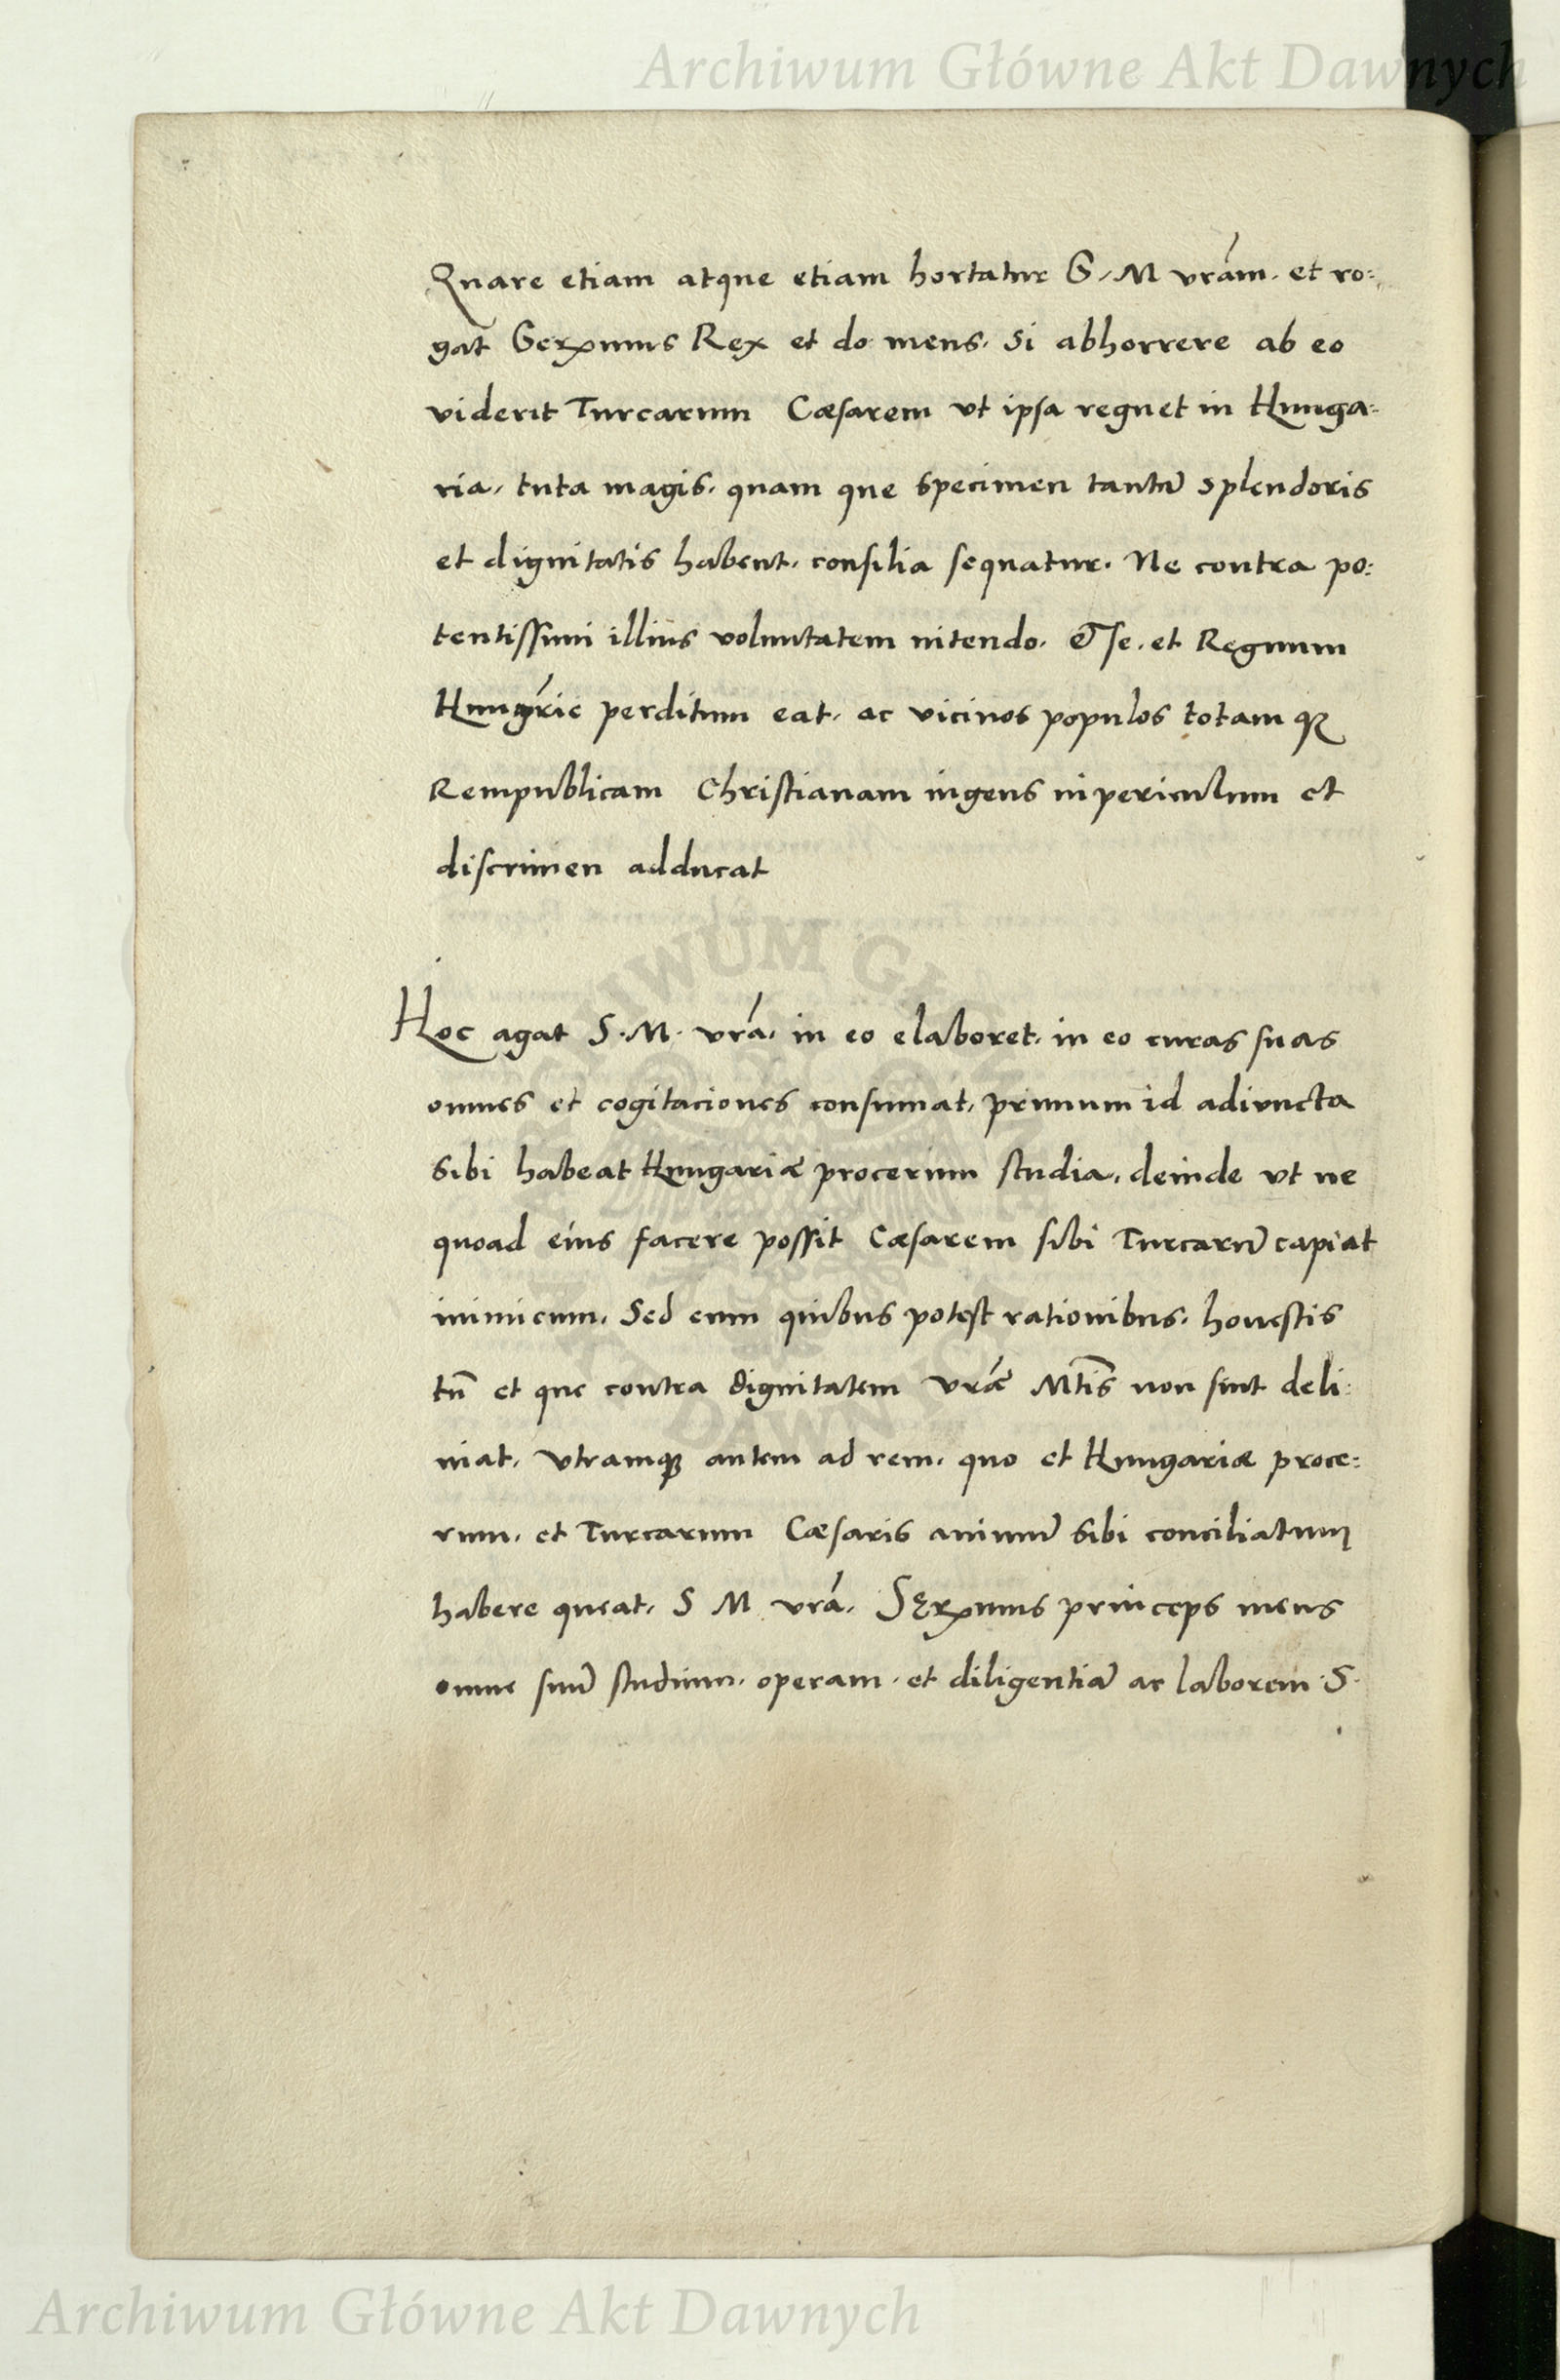 Archiwum Główne Akt Dawnych
Quare etiam atque etiam hortatur S. M vrām. et ro:
gat Serxnnus Rex et do meus. Si abhorrere ab eo
viderit Turcarum Cæsarem vt ipsa regnet in Hunga:
ria, tuta magis, quam que specimen tantū splendoris
et dignitatis habent, consilia sequatur. Ne contra po:
tentissimi illius voluntatem nitendo. & se. et Regnum
Hungrie perditum eat, ac vicinos populos totam qꝫ
Rempublicam Christianam ingens in periculum et
discrimen adducat
Hoc agat S. M. vrā, in eo elaboret, in eo curas suas
omnes et cogitaciones consumat, primum id adiuncta
sibi habeat Hungariæ procerum studia, deinde vt ne
quoad eius facere possit Cæsarem sibi Turcarū capiat
inimicum. Sed eum quibus potest rationibus, honestis
tn̄ et que contra dignitatem vræ Mtis non sint deli:
niat. Vtramqꝫ autem ad rem, quo et Hungariæ proce:
rum, et Turcarum Cæsaris animū sibi conciliatum
habere queat, S M vrā, Serxnnus princeps meus
omne suū studium, operam, et diligentiā ac laborem S.
Archiwum Główne Akt Dawnych